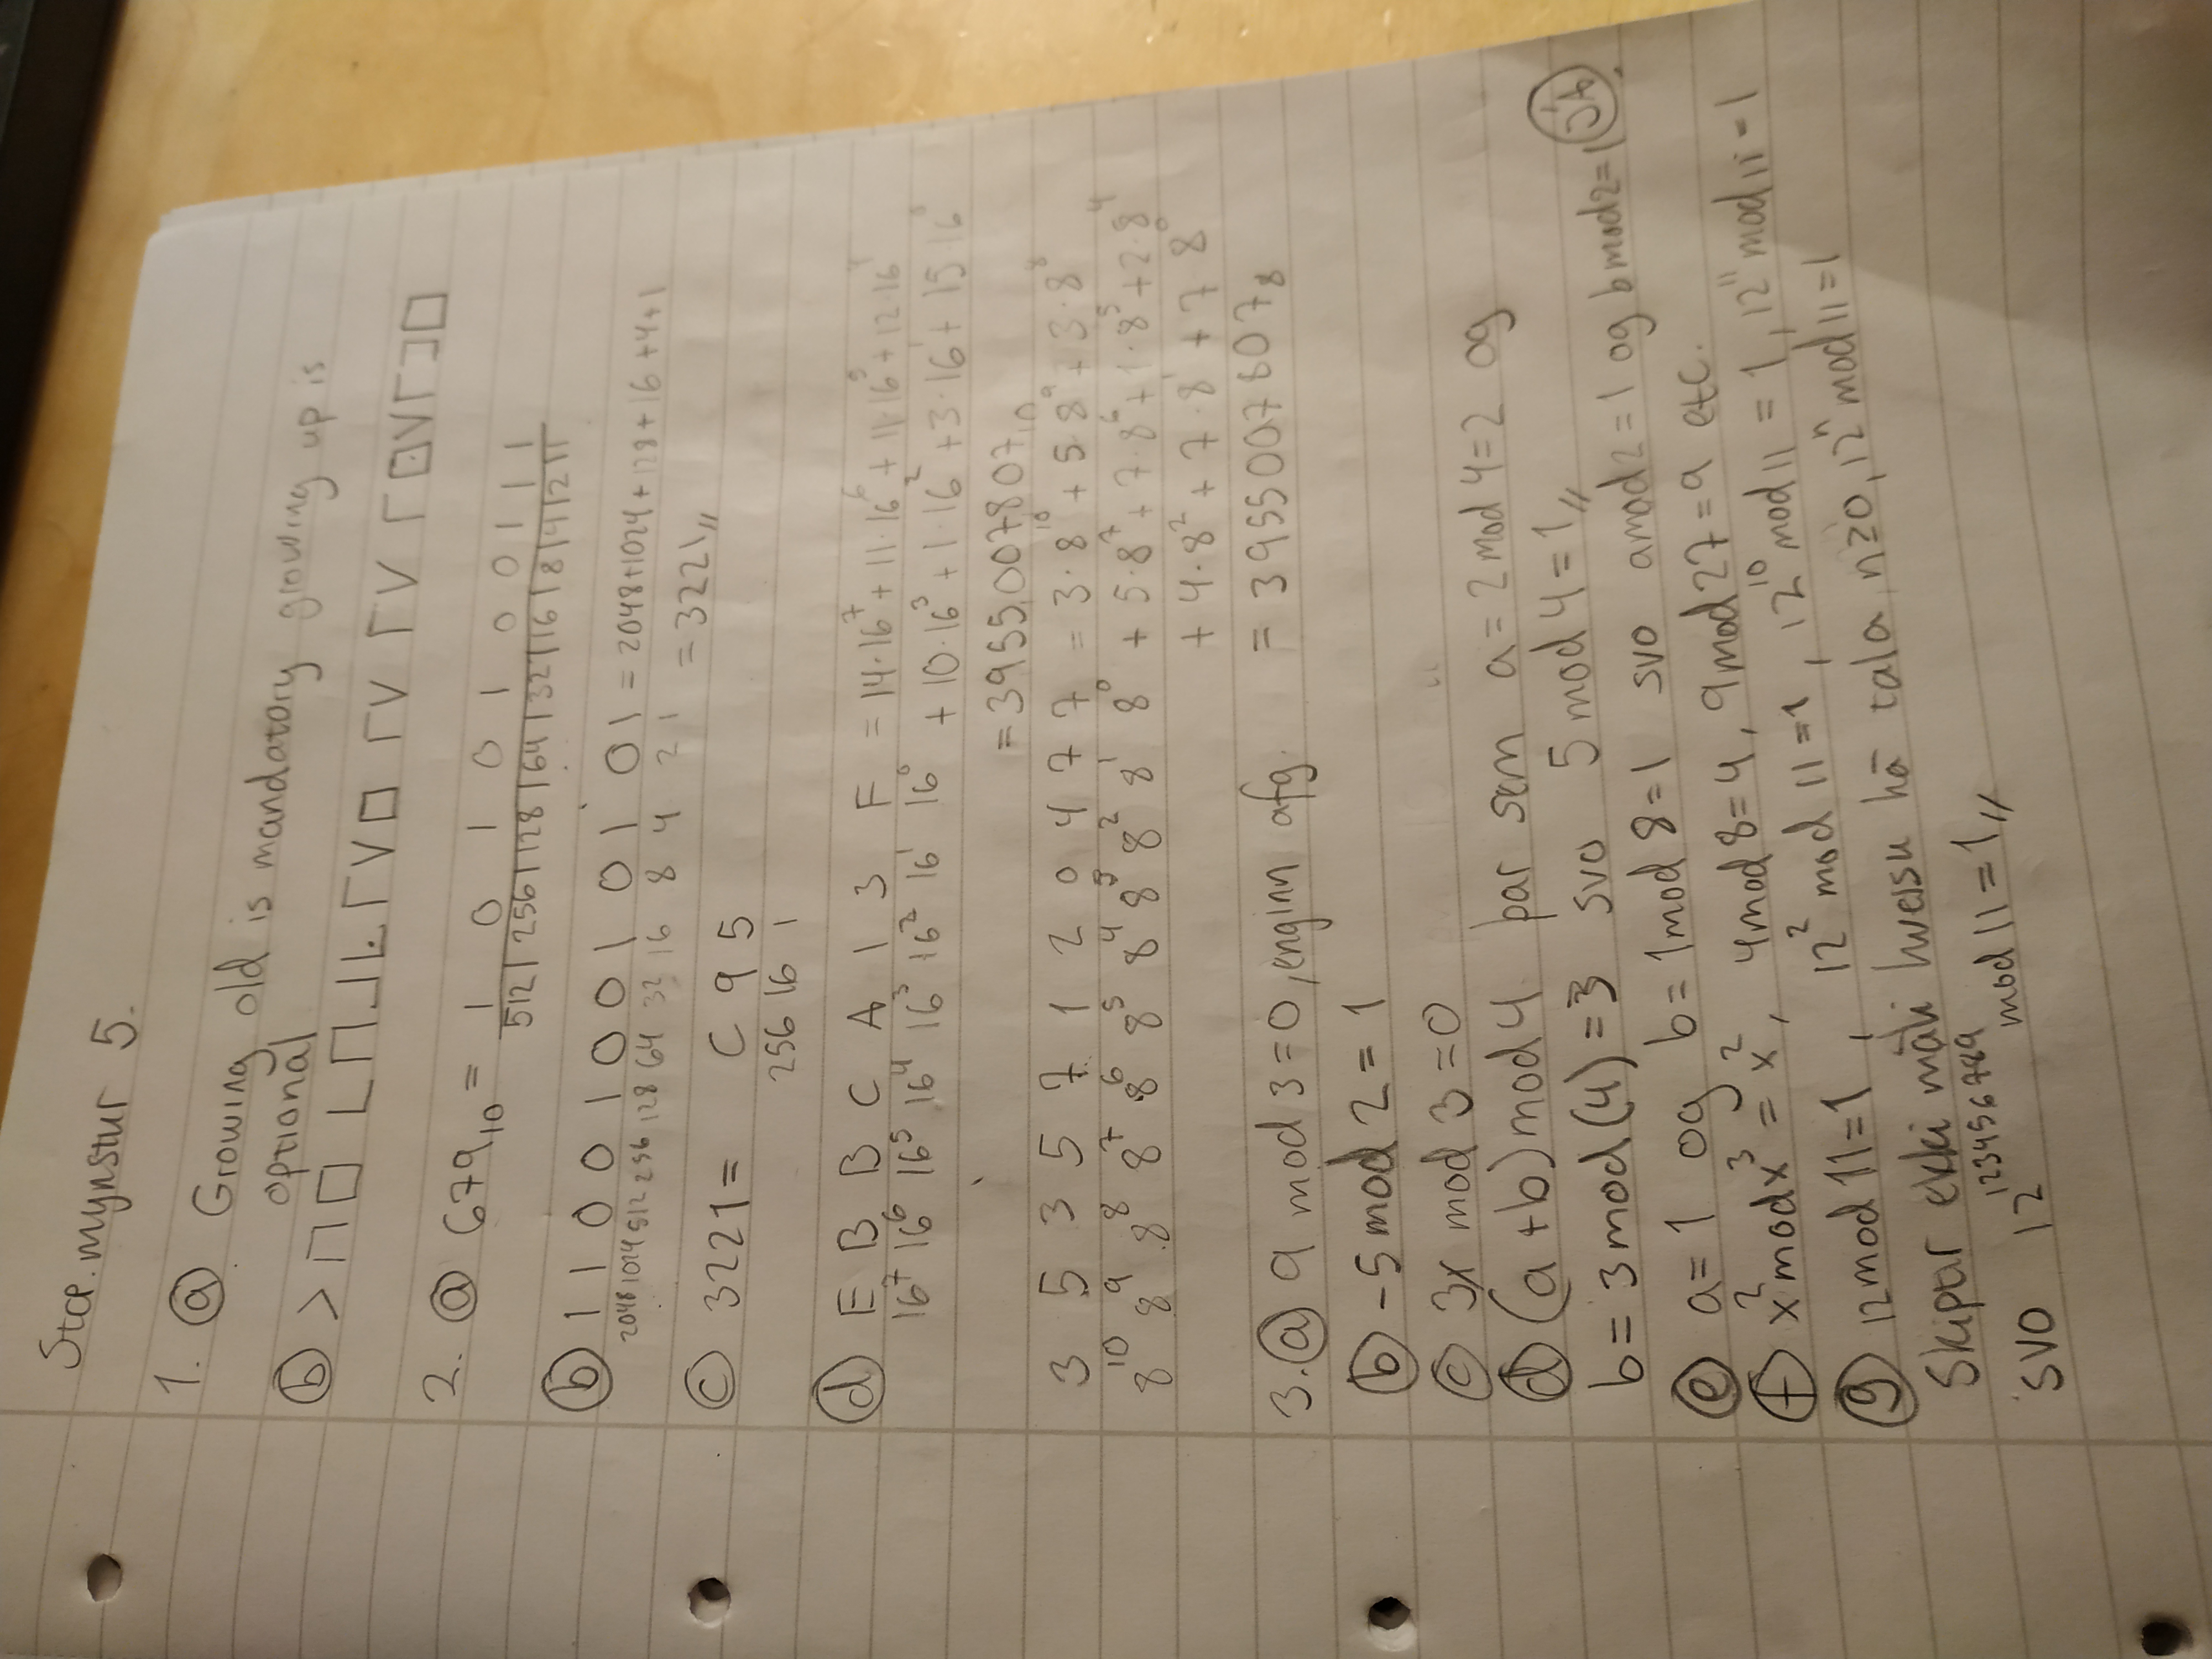 Stæ. mynstur 5.
1. ⓐ Growing old is mandatory growing up is
optional
ⓑ > ⊓ □ L ⊓ ⅃ L· Γ V □ Γ V Γ V Γ ⊡ V Γ ⊐ □
2. ⓐ 679₁₀ = 1 0 1 0 1 0 0 1 1 1
512 | 256 | 128 | 64 | 32 | 16 | 8 | 4 | 2 | 1
ⓑ 1 1 0 0 1 0 0 1 0 1 0 1 = 2048+1024+128+16+4+1
2048 1024 512 256 128 64 32 16 8 4 2 1
= 3221 //
ⓒ 3221 = C 9 5
256 16 1
ⓓ E B B C A 1 3 F = 14·16⁷ + 11·16⁶ + 11·16⁵ + 12·16⁴
16⁷ 16⁶ 16⁵ 16⁴ 16³ 16² 16¹ 16⁰ + 10·16³ + 1·16² + 3·16¹ + 15·16⁰
= 3955007807₁₀
3 5 3 5 7 1 2 0 4 7 7 = 3·8¹⁰ + 5·8⁹ + 3·8⁸
8¹⁰ 8⁹ 8⁸ 8⁷ 8⁶ 8⁵ 8⁴ 8³ 8² 8¹ 8⁰ + 5·8⁷ + 7·8⁶ + 1·8⁵ + 2·8⁴
+ 4·8² + 7·8¹ + 7 8⁰
= 3955007807₈
3. ⓐ 9 mod 3 = 0, enginn afg.
ⓑ -5 mod 2 = 1
ⓒ 3x mod 3 = 0
ⓓ (a+b) mod 4 þar sem a = 2 mod 4 = 2 og
b = 3 mod (4) = 3 svo 5 mod 4 = 1 //
ⓔ a = 1 og b = 1 mod 8 = 1 svo a mod 2 = 1 og b mod 2 = 1 JÁ
ⓕ x² mod x³ = x², 4 mod 8 = 4, 9 mod 27 = 9 etc.
ⓖ 12 mod 11 = 1, 12² mod 11 = 1, 12¹⁰ mod 11 = 1, 12¹¹ mod 11 = 1
Skiptir ekki máli hversu há tala n ≥ 0, 12ⁿ mod 11 = 1
svo 12¹²³⁴⁵⁶⁷⁸⁹ mod 11 = 1 //